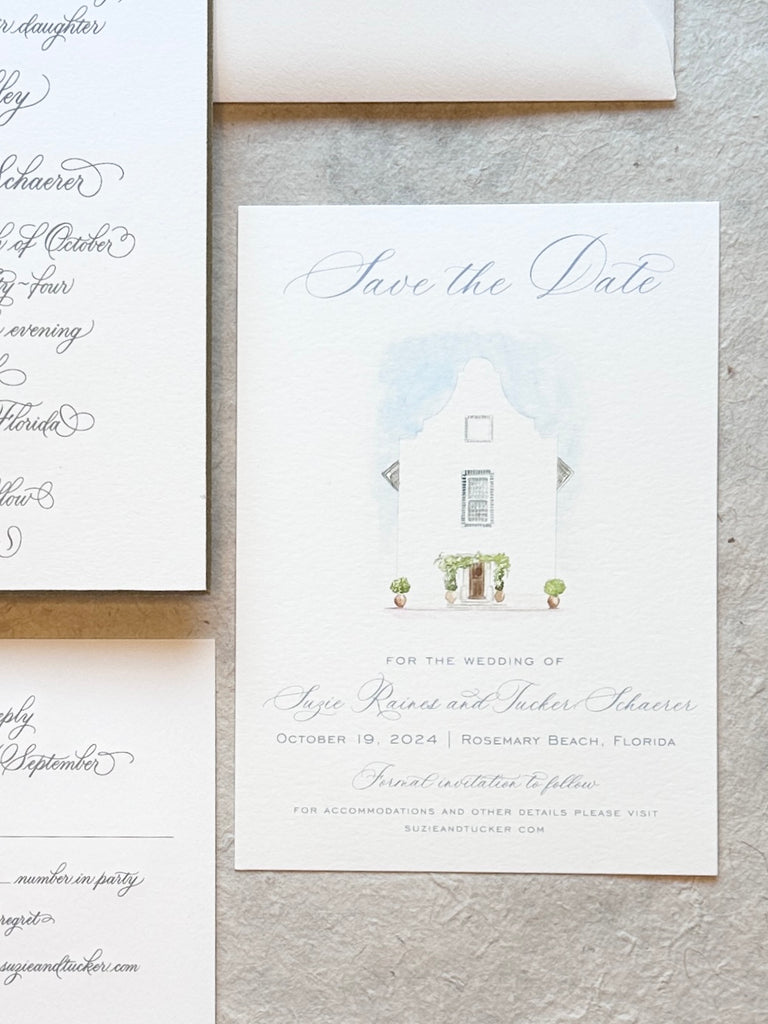 daughter
Schaerer
of October
four
evening
Florida
reply
September
number in party
regret
suzieandtucker.com
Save the Date
FOR THE WEDDING OF
Suzie Raines and Tucker Schaerer
OCTOBER 19, 2024 | ROSEMARY BEACH, FLORIDA
Formal invitation to follow
FOR ACCOMMODATIONS AND OTHER DETAILS PLEASE VISIT
SUZIEANDTUCKER.COM